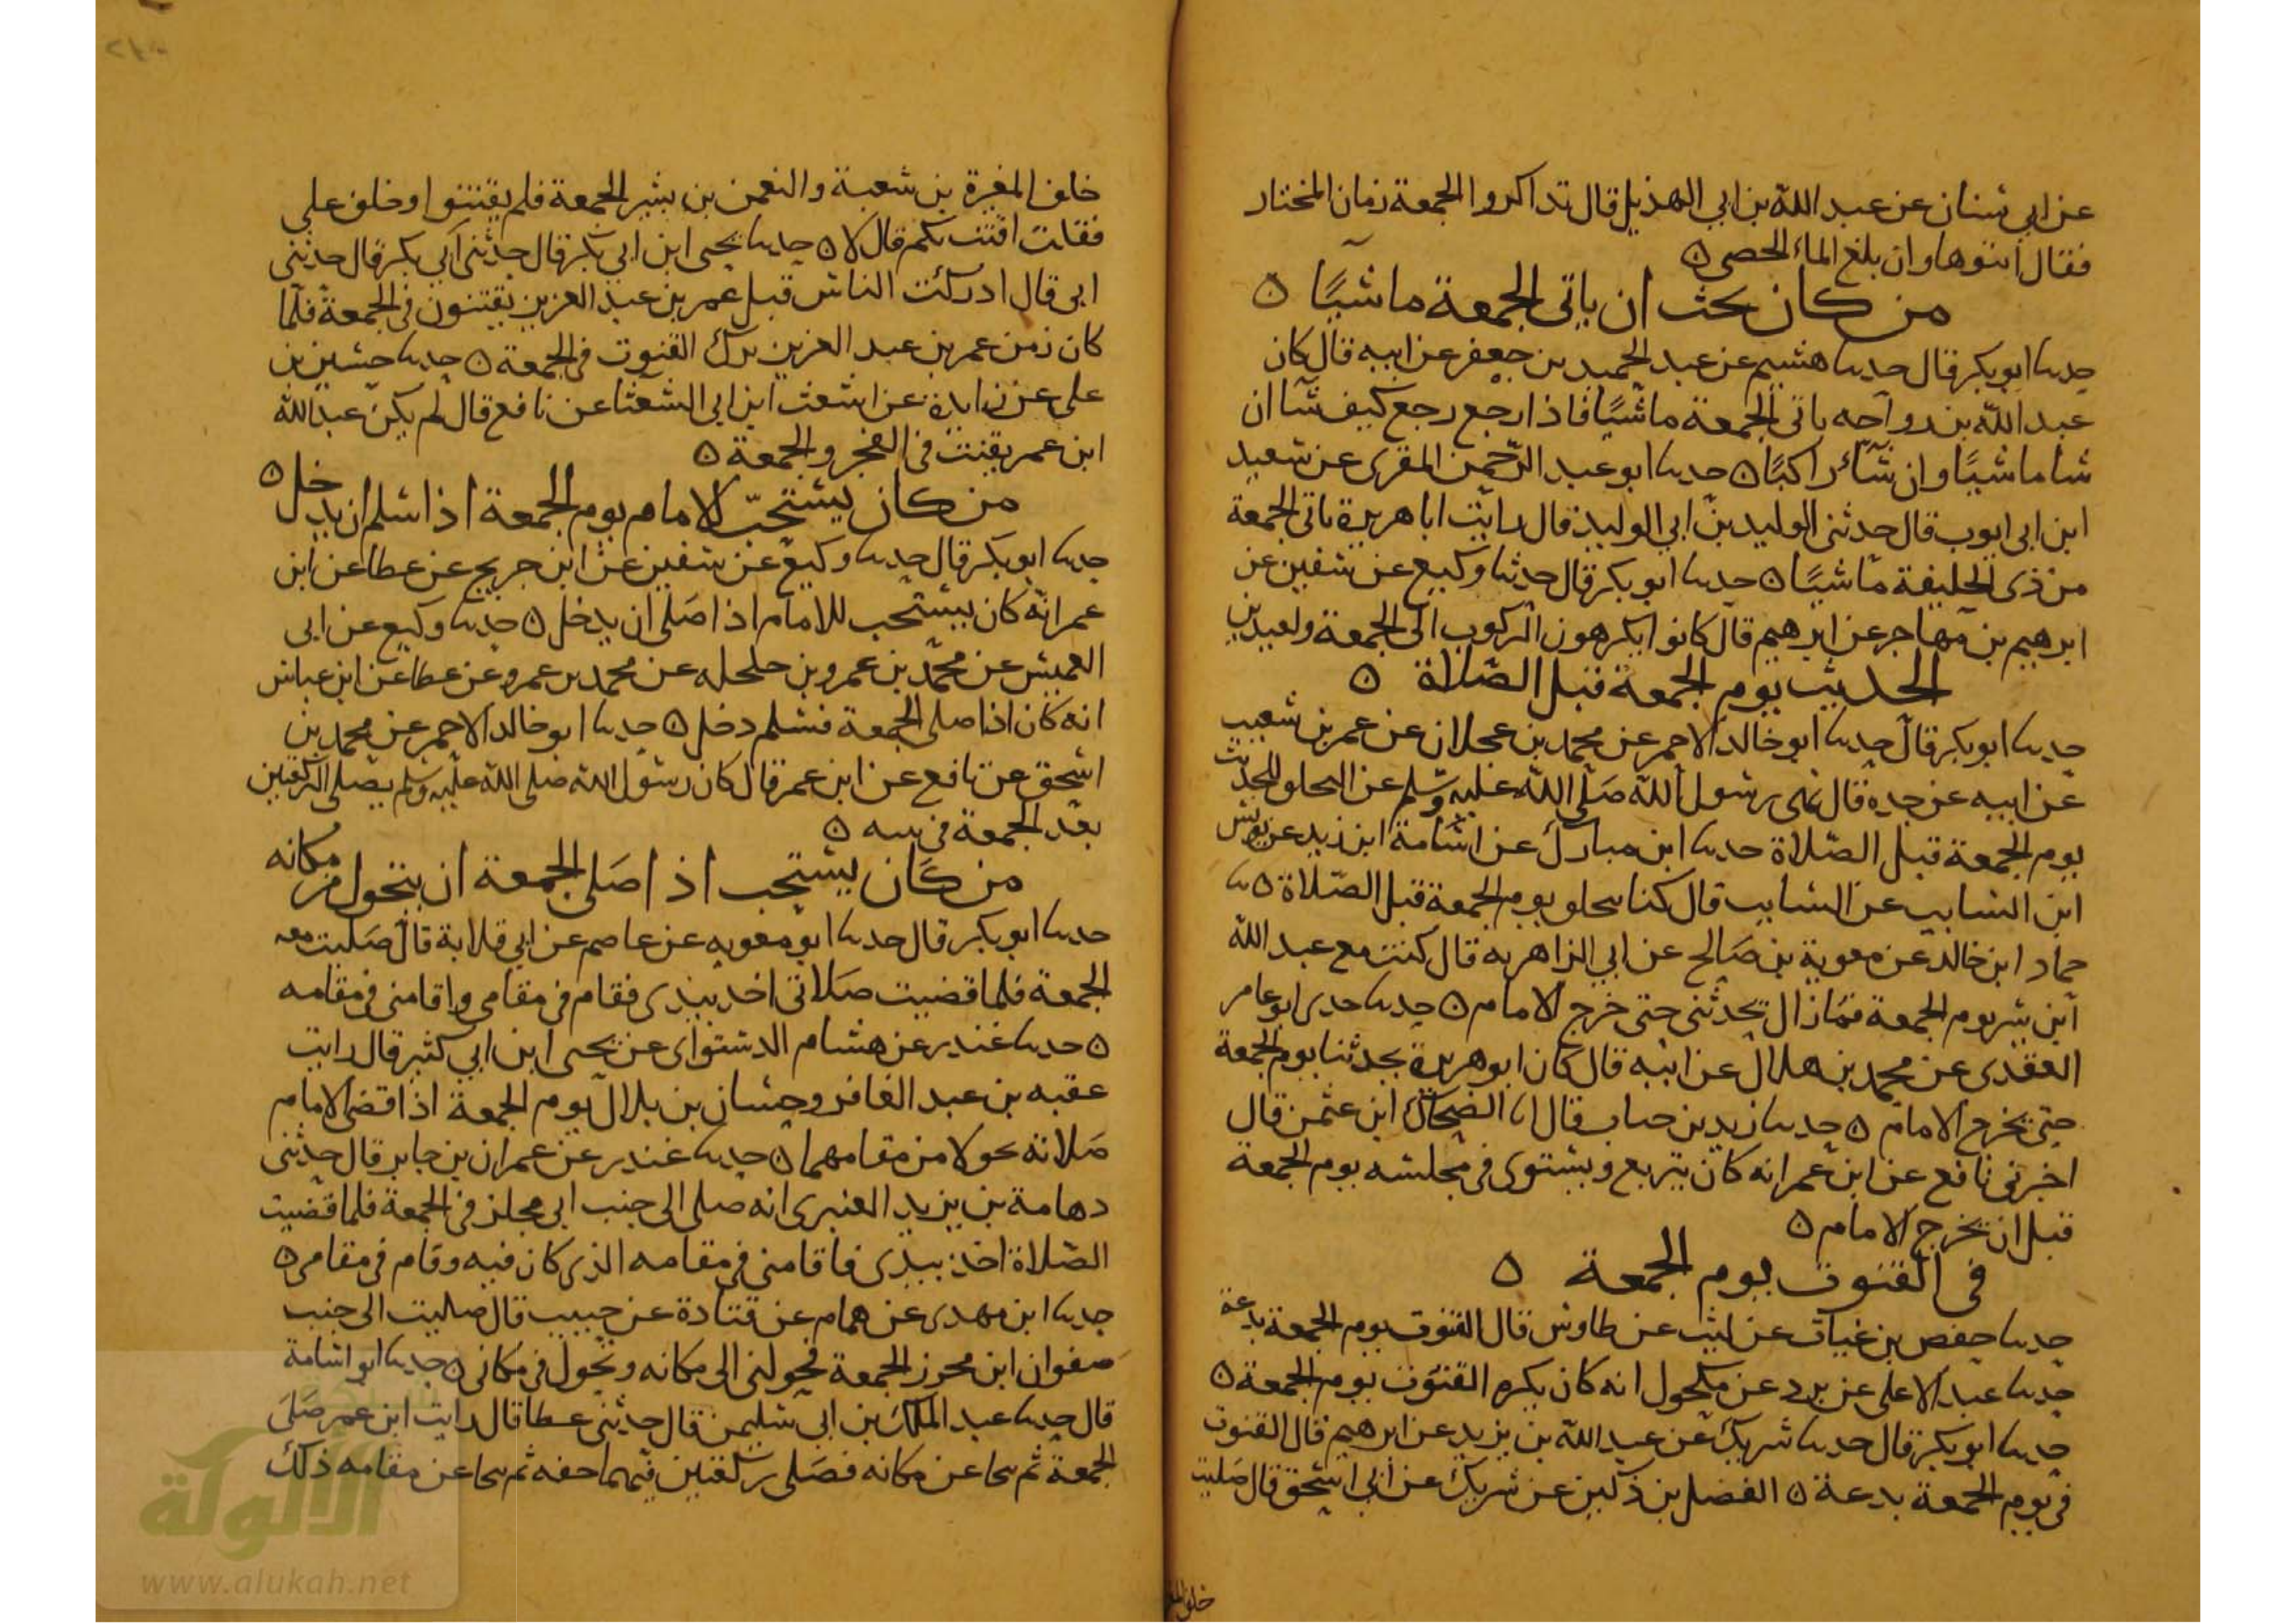 عن ابي سنان عن عبد الله بن ابي الهذيل قال تذاكروا الجمعة زمان المختار
فقال ائتوها وان بلغ الماء الحصى ٥
من كان يحب ان ياتى الجمعة ماشيًا ٥
حدثنا ابو بكر قال حدثنا هشيم عن عبد الحميد بن جعفر عن ابيه قال كان
عبد الله بن رواحه ياتى الجمعة ماشيًا فاذا رجع رجع كيف شآ ان
شا ماشيًا وان شآء راكبًا ٥ حدثنا ابو عبد الرحمن المقرى عن سعيد
ابن ابى ايوب قال حدثنى الوليد بن ابي الوليد قال رايت ابا هريرة ياتى الجمعة
من ذى الحليفة ماشيًا ٥ حدثنا ابو بكر قال حدثنا وكيع عن سفين عن
ابرهيم بن مهاجر عن ابرهيم قال كانوا يكرهون الركوب الى الجمعة ولعيدين
الحديث يوم الجمعة قبل الصّلاة ٥
حدثنا ابو بكر قال حدثنا ابو خالد الاحمر عن محمد بن عجلان عن عمر بن شعيب
عن ابيه عن جده قال نهى رسول الله صَلّى الله عليه وسّلم عن التحلق للحديث
يوم الجمعة قبل الصّلاة حدثنا ابن مبارك عن اسامة ابن زيد عن يونس
ابن السايب عن السايب قال كنا نتحلق يوم الجمعة قبل الصّلاة ٥ ثنا
حماد ابن خالد عن معوية بن صَالح عن ابي الزاهريه قال كنت مع عبد الله
ابن بسر يوم الجمعة فمَا زال يحدثنى حتى خرج الامام ٥ حدثنا ابو عامر
العقدى عن محمد بن هلال عن ابيه قال كان ابو هريرة يحدثنا يوم الجمعة
حتى يخرج الامام ٥ حدثنا زيد بن حباب قال انا الضحاك ابن عثمن قال
اخبرنى نافع عن ابن عمر انه كان يتربع ويستوى فى مجلسه يوم الجمعة
قبل ان يخرج الامام ٥
فى القنوت يوم الجمعة ٥
حدثنا حفص بن غياث عن ليث عن طاوس قال القنوت يوم الجمعة بدعة
حدثنا عبد الاعلى عن برد عن مكحول انه كان يكره القنوت يوم الجمعة ٥
حدثنا ابو بكر قال حدثنا شريك عن عبد الله بن يزيد عن ابرهيم قال القنوت
فى يوم الجمعة بدعة ٥ الفضل بن دكين عن شريك عن ابى اسحق قال صَليت
خلف المغيرة بن شعبة والنعمن بن بشير الجمعة فلم يقنتوا وخلف على
فقلت اقنت بكم قال لا ٥ حدثنا يحيى ابن ابي بكر قال حدثنى ابي بكر قال حدثنى
ابى قال ادركت الناس قبل عمر بن عبد العزيز يقنتون فى الجمعة فلما
كان زمن عمر بن عبد العزيز ترك القنوت فى الجمعة ٥ حدثنا حسين بن
على عن زايدة عن اشعث ابن ابي الشعثا عن نافع قال لم يكن عبد الله
ابن عمر يقنت فى الفجر والجمعة ٥
من كان يستحبّ للامام يوم الجمعة اذا سلم ان يدخل ٥
حدثنا ابو بكر قال حدثنا وكيع عن سفين عن ابن جريج عن عطا عن ابن
عمر انه كان يستحب للامام اذا صَلى ان يدخل ٥ حدثنا وكيع عن ابى
العميس عن محمد بن عمرو بن حلحله عن محمد بن عمرو عن عطا عن ابن عباس
انه كان اذا صلى الجمعة فسلم دخل ٥ حدثنا ابو خالد الاحمر عن محمد بن
اسحق عن نافع عن ابن عمر قال كان رسول الله صلى الله عليه وسلم يصلى الركعتين
بعد الجمعة فى بيته ٥
من كان يستحب اذا صَلى الجمعة ان يتحول من مكانه
حدثنا ابو بكر قال حدثنا ابو معويه عن عاصم عن ابي قلابة قال صَليت معه
الجمعة فلما قضيت صَلاتى اخذ بيدى فقام فى مقامى واقامنى فى مقامه
٥ حدثنا غندر عن هشام الدستواى عن يحيى ابن ابي كثير قال رايت
عقبه بن عبد الغافر وحسان بن بلال يوم الجمعة اذا قضى الامام
صَلاته تحولا من مقامهما ٥ حدثنا غندر عن عمران بن حابر قال حدثنى
دهامة بن يزيد العنبرى انه صلى الى جنب ابى مجلز فى الجمعة فلما قضيت
الصّلاة اخذ بيدى فاقامنى فى مقامه الذى كان فيه وقام فى مقامى ٥
حدثنا ابن مهدى عن همام عن قتادة عن حبيب قال صليت الى جنب
صفوان ابن محرز الجمعة فحولنى الى مكانه وتحول فى مكانى ٥ حدثنا ابو اسامة
قال حدثنا عبد الملك بن ابى سليمن قال حدثنى عطا قال رايت ابن عمر صَلىَ
الجمعة ثم تنحا عن مكانه فصَلى ركعتين فيهما خفه ثم تنحا عن مقامه ذلك
الألوكة
www.alukah.net